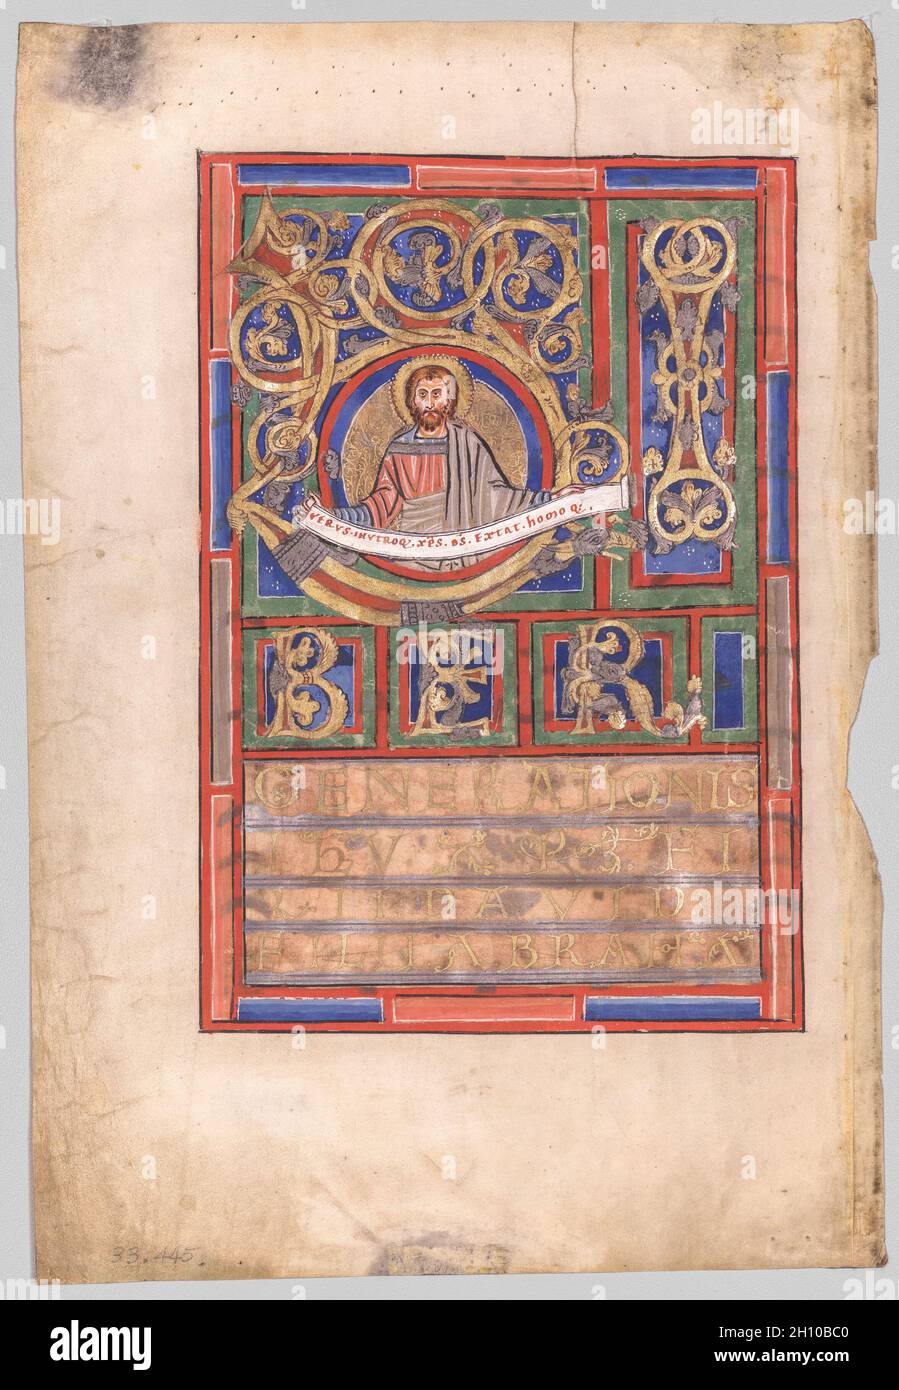 LI
VERUS · INUTROQ; XPS · DS · EXTAT · homo Q;
BER
GENERATIONIS
IHV XPI FI
LII DAVID
FILII ABRAHA
33.445
alamy
Image ID: 2H10BC0
www.alamy.com